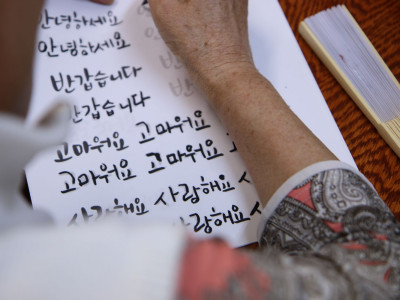 안녕하세요
안녕하세요 안
반갑습니다 반
반갑습니다
고마워요 고마워요
고마워요 고마워요 고
사랑해요 사랑해요 사
사랑해요